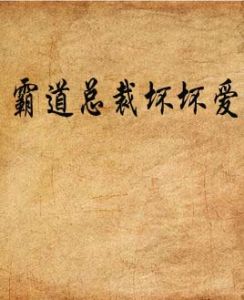 霸道总裁坏坏爱